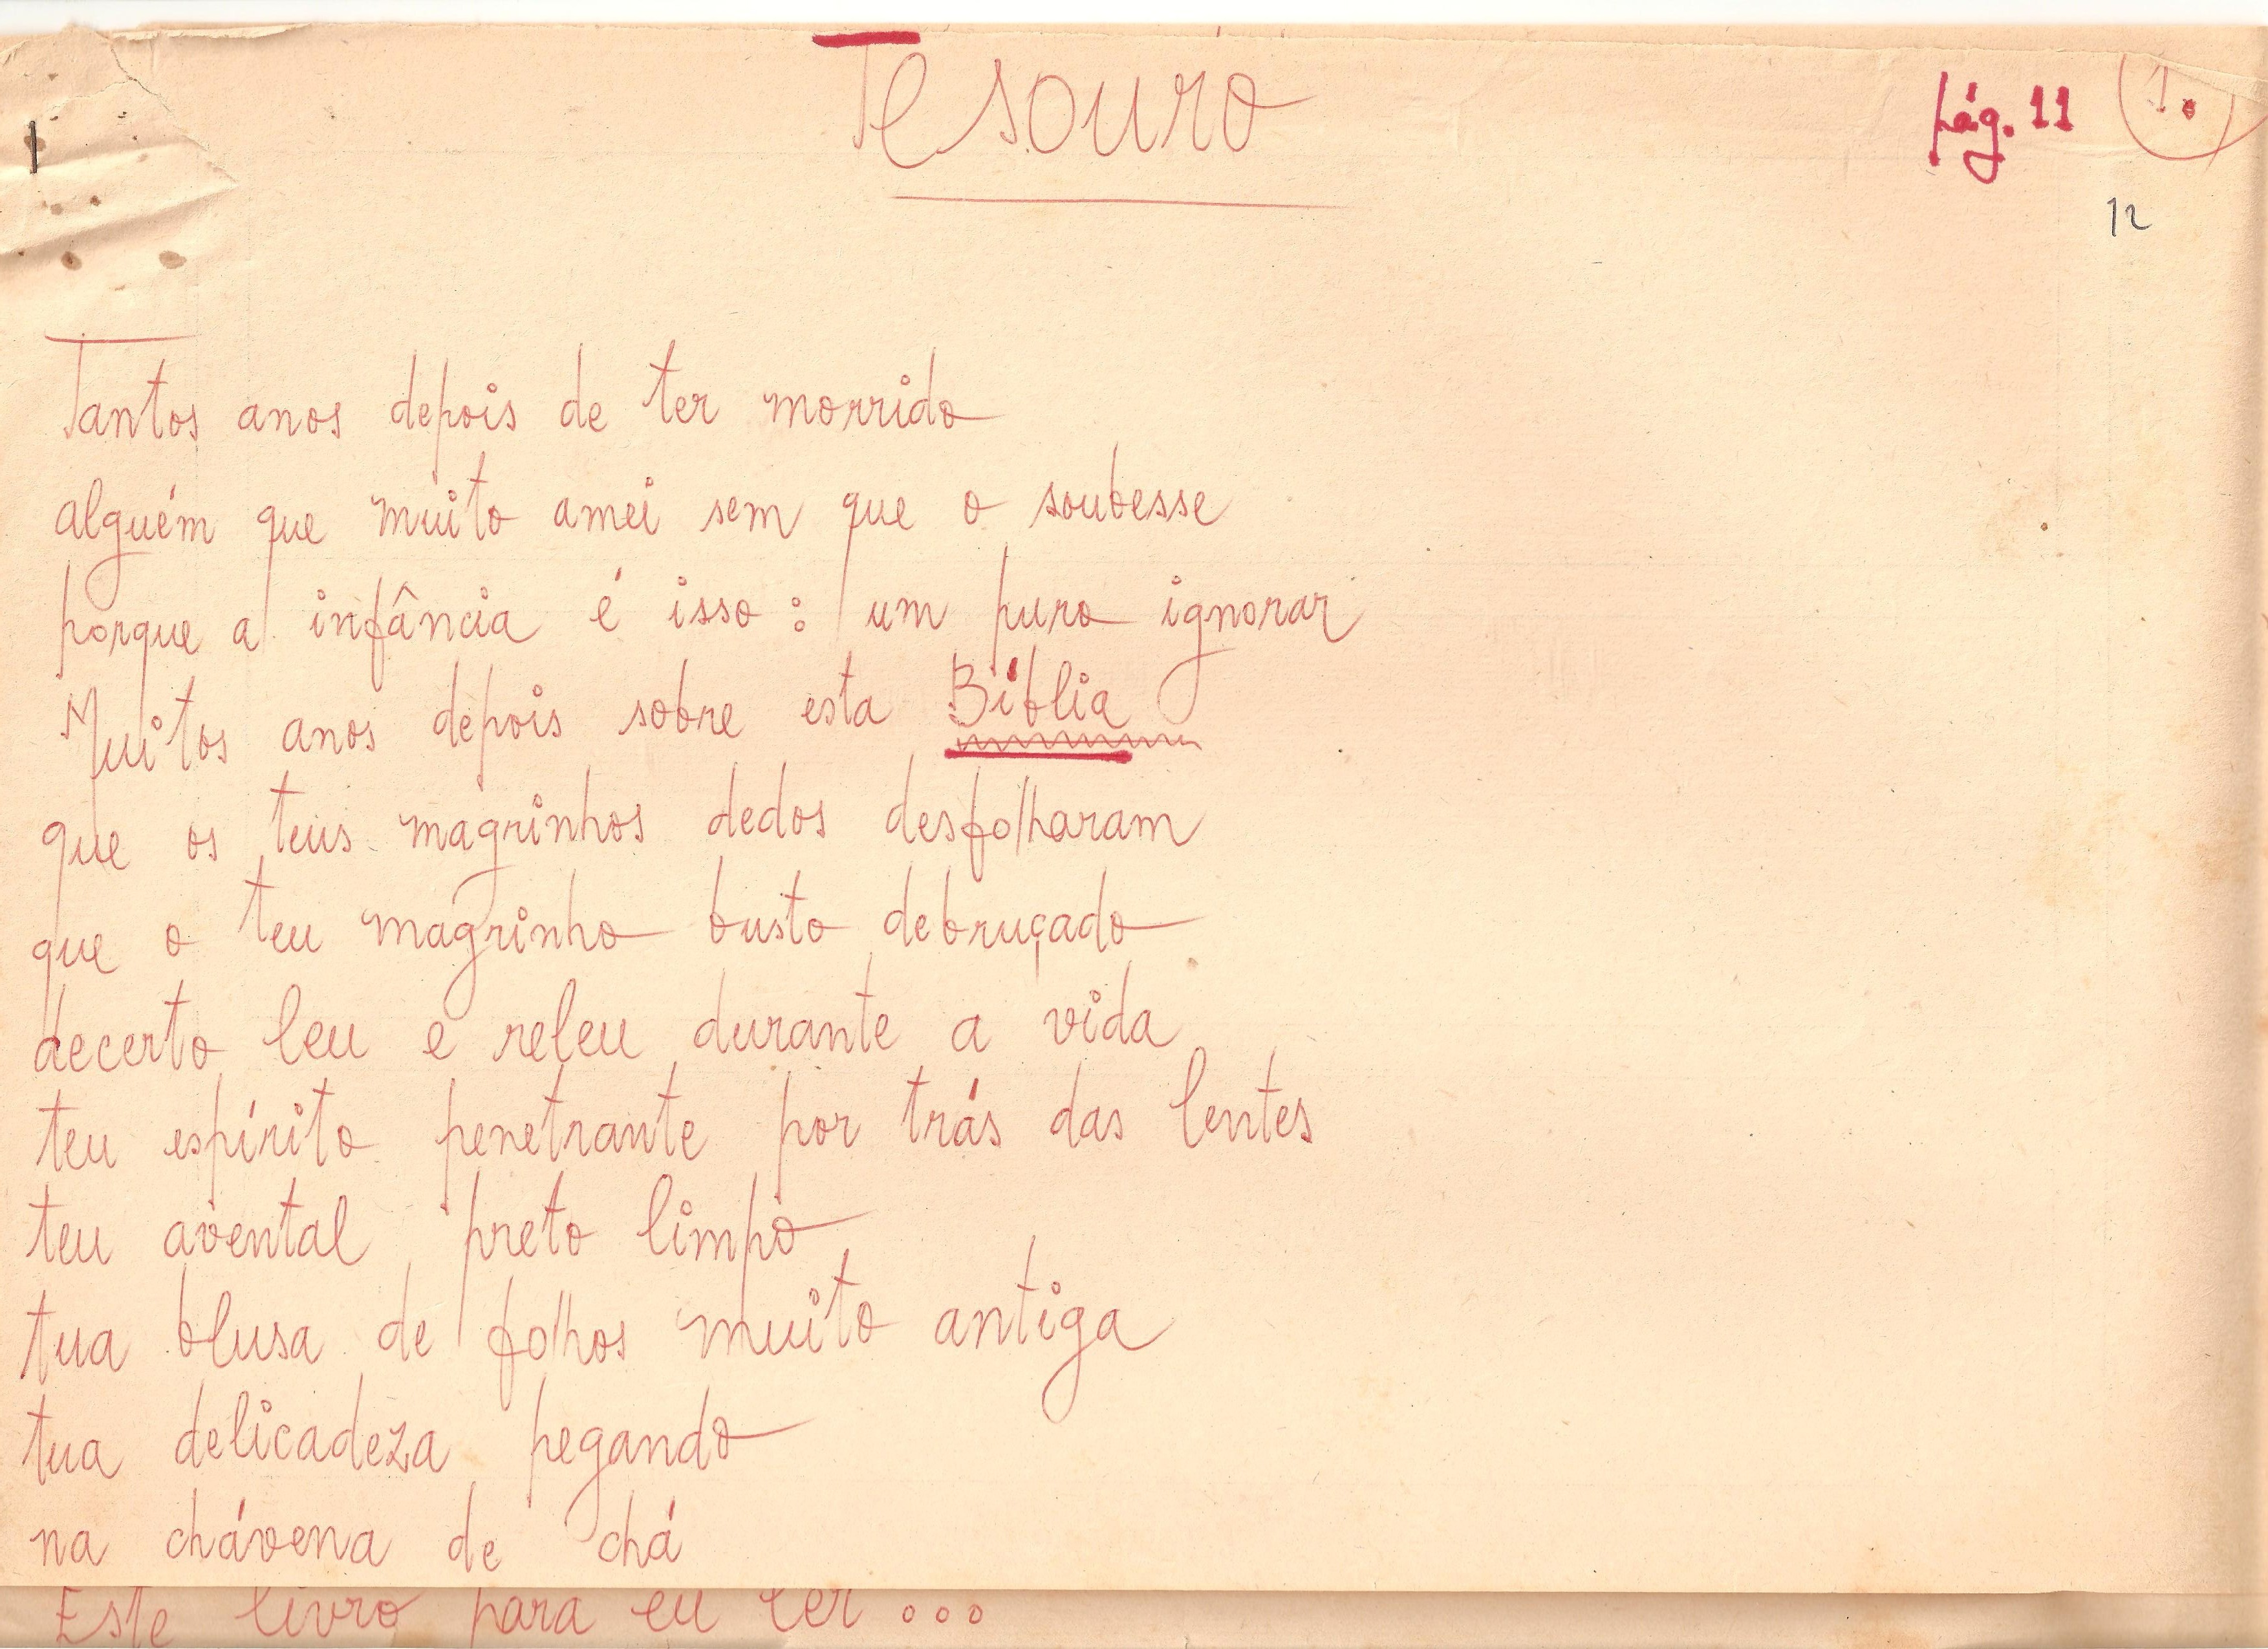 Tesouro
pág. 11
1.
12
Tantos anos depois de ter morrido
alguém que muito amei sem que o soubesse
porque a infância é isso: um puro ignorar
Muitos anos depois sobre esta Bíblia
que os teus magrinhos dedos desfolharam
que o teu magrinho busto debruçado
decerto leu e releu durante a vida
teu espírito penetrante por trás das lentes
teu avental preto limpo
tua blusa de folhos muito antiga
tua delicadeza pegando
na chávena de chá
Este livro para eu ler...